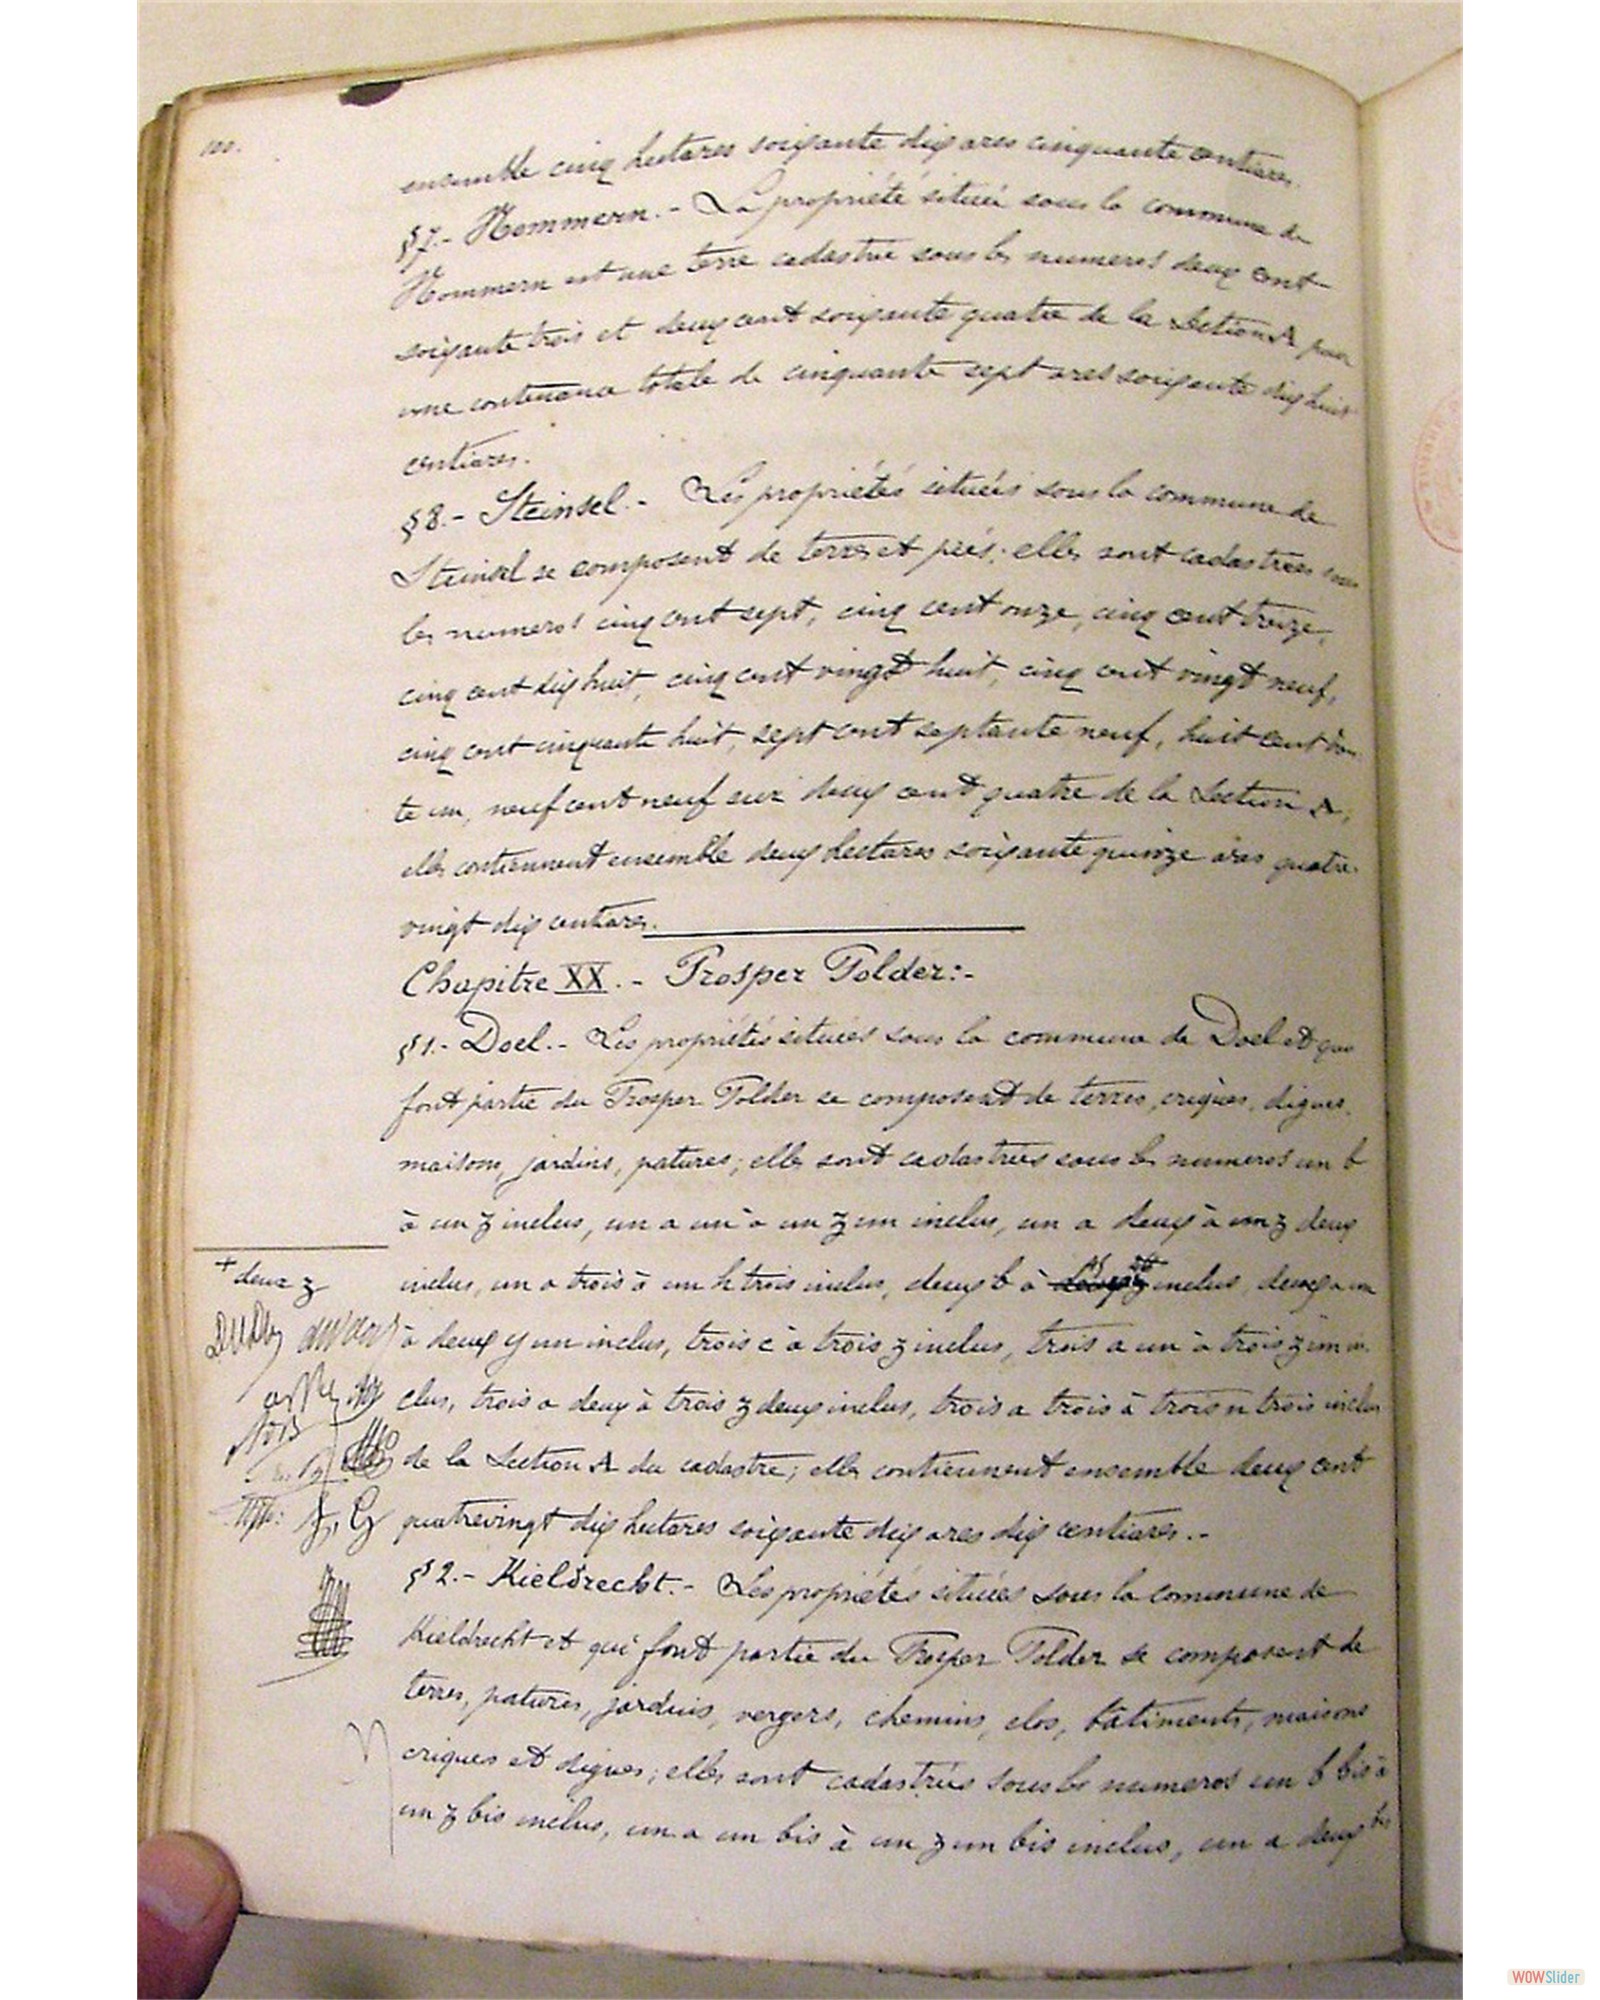 100.
ensemble cinq hectares soixante dix ares cinquante centiares.
§7.- Nommern.- La propriété située sous la commune de
Nommern est une terre cadastrée sous les numeros deux cent
soixante trois et deux cent soixante quatre de la Section A pour
une contenance totale de cinquante sept ares soixante dix huit
centiares.
§8.- Steinsel.- Les propriétés situées sous la commune de
Steinsel se composent de terres et prés; elles sont cadastrées sous
les numeros cinq cent sept, cinq cent onze, cinq cent treize,
cinq cent dix huit, cinq cent vingt huit, cinq cent vingt neuf,
cinq cent cinquante huit, sept cent septante neuf, huit cent
te un, neuf cent neuf sur deux cent quatre de la Section A,
elles contiennent ensemble deux hectares soixante quinze ares quatre
vingt dix centiares.
Chapitre XX.- Prosper Polder:-
§1.- Doel.- Les propriétés situées sous la commune de Doel et qui
font partie du Prosper Polder se composent de terres, criques, digues,
maisons, jardins, patures; elles sont cadastrées sous les numeros un b
à un z inclus, un a un à un z un inclus, un a deux à un z deux
+ deux z
inclus, un a trois à un h trois inclus, deux b à inclus, deux a un
à deux y un inclus, trois c à trois z inclus, trois a un à trois z un in
clus, trois a deux à trois z deux inclus, trois a trois à trois n trois inclus
de la Section A du cadastre; elles contiennent ensemble deux cent
quatrevingt dix hectares soixante dix ares dix centiares.-
§2.- Kieldrecht.- Les propriétés situées sous la commune de
Kieldrecht et qui font partie du Prosper Polder se composent de
terres, patures, jardins, vergers, chemins, clos, bâtiments, maisons
criques et digues; elles sont cadastrées sous les numeros un b bis à
un z bis inclus, un a un bis à un z un bis inclus, un a deux bis
WOWSlider